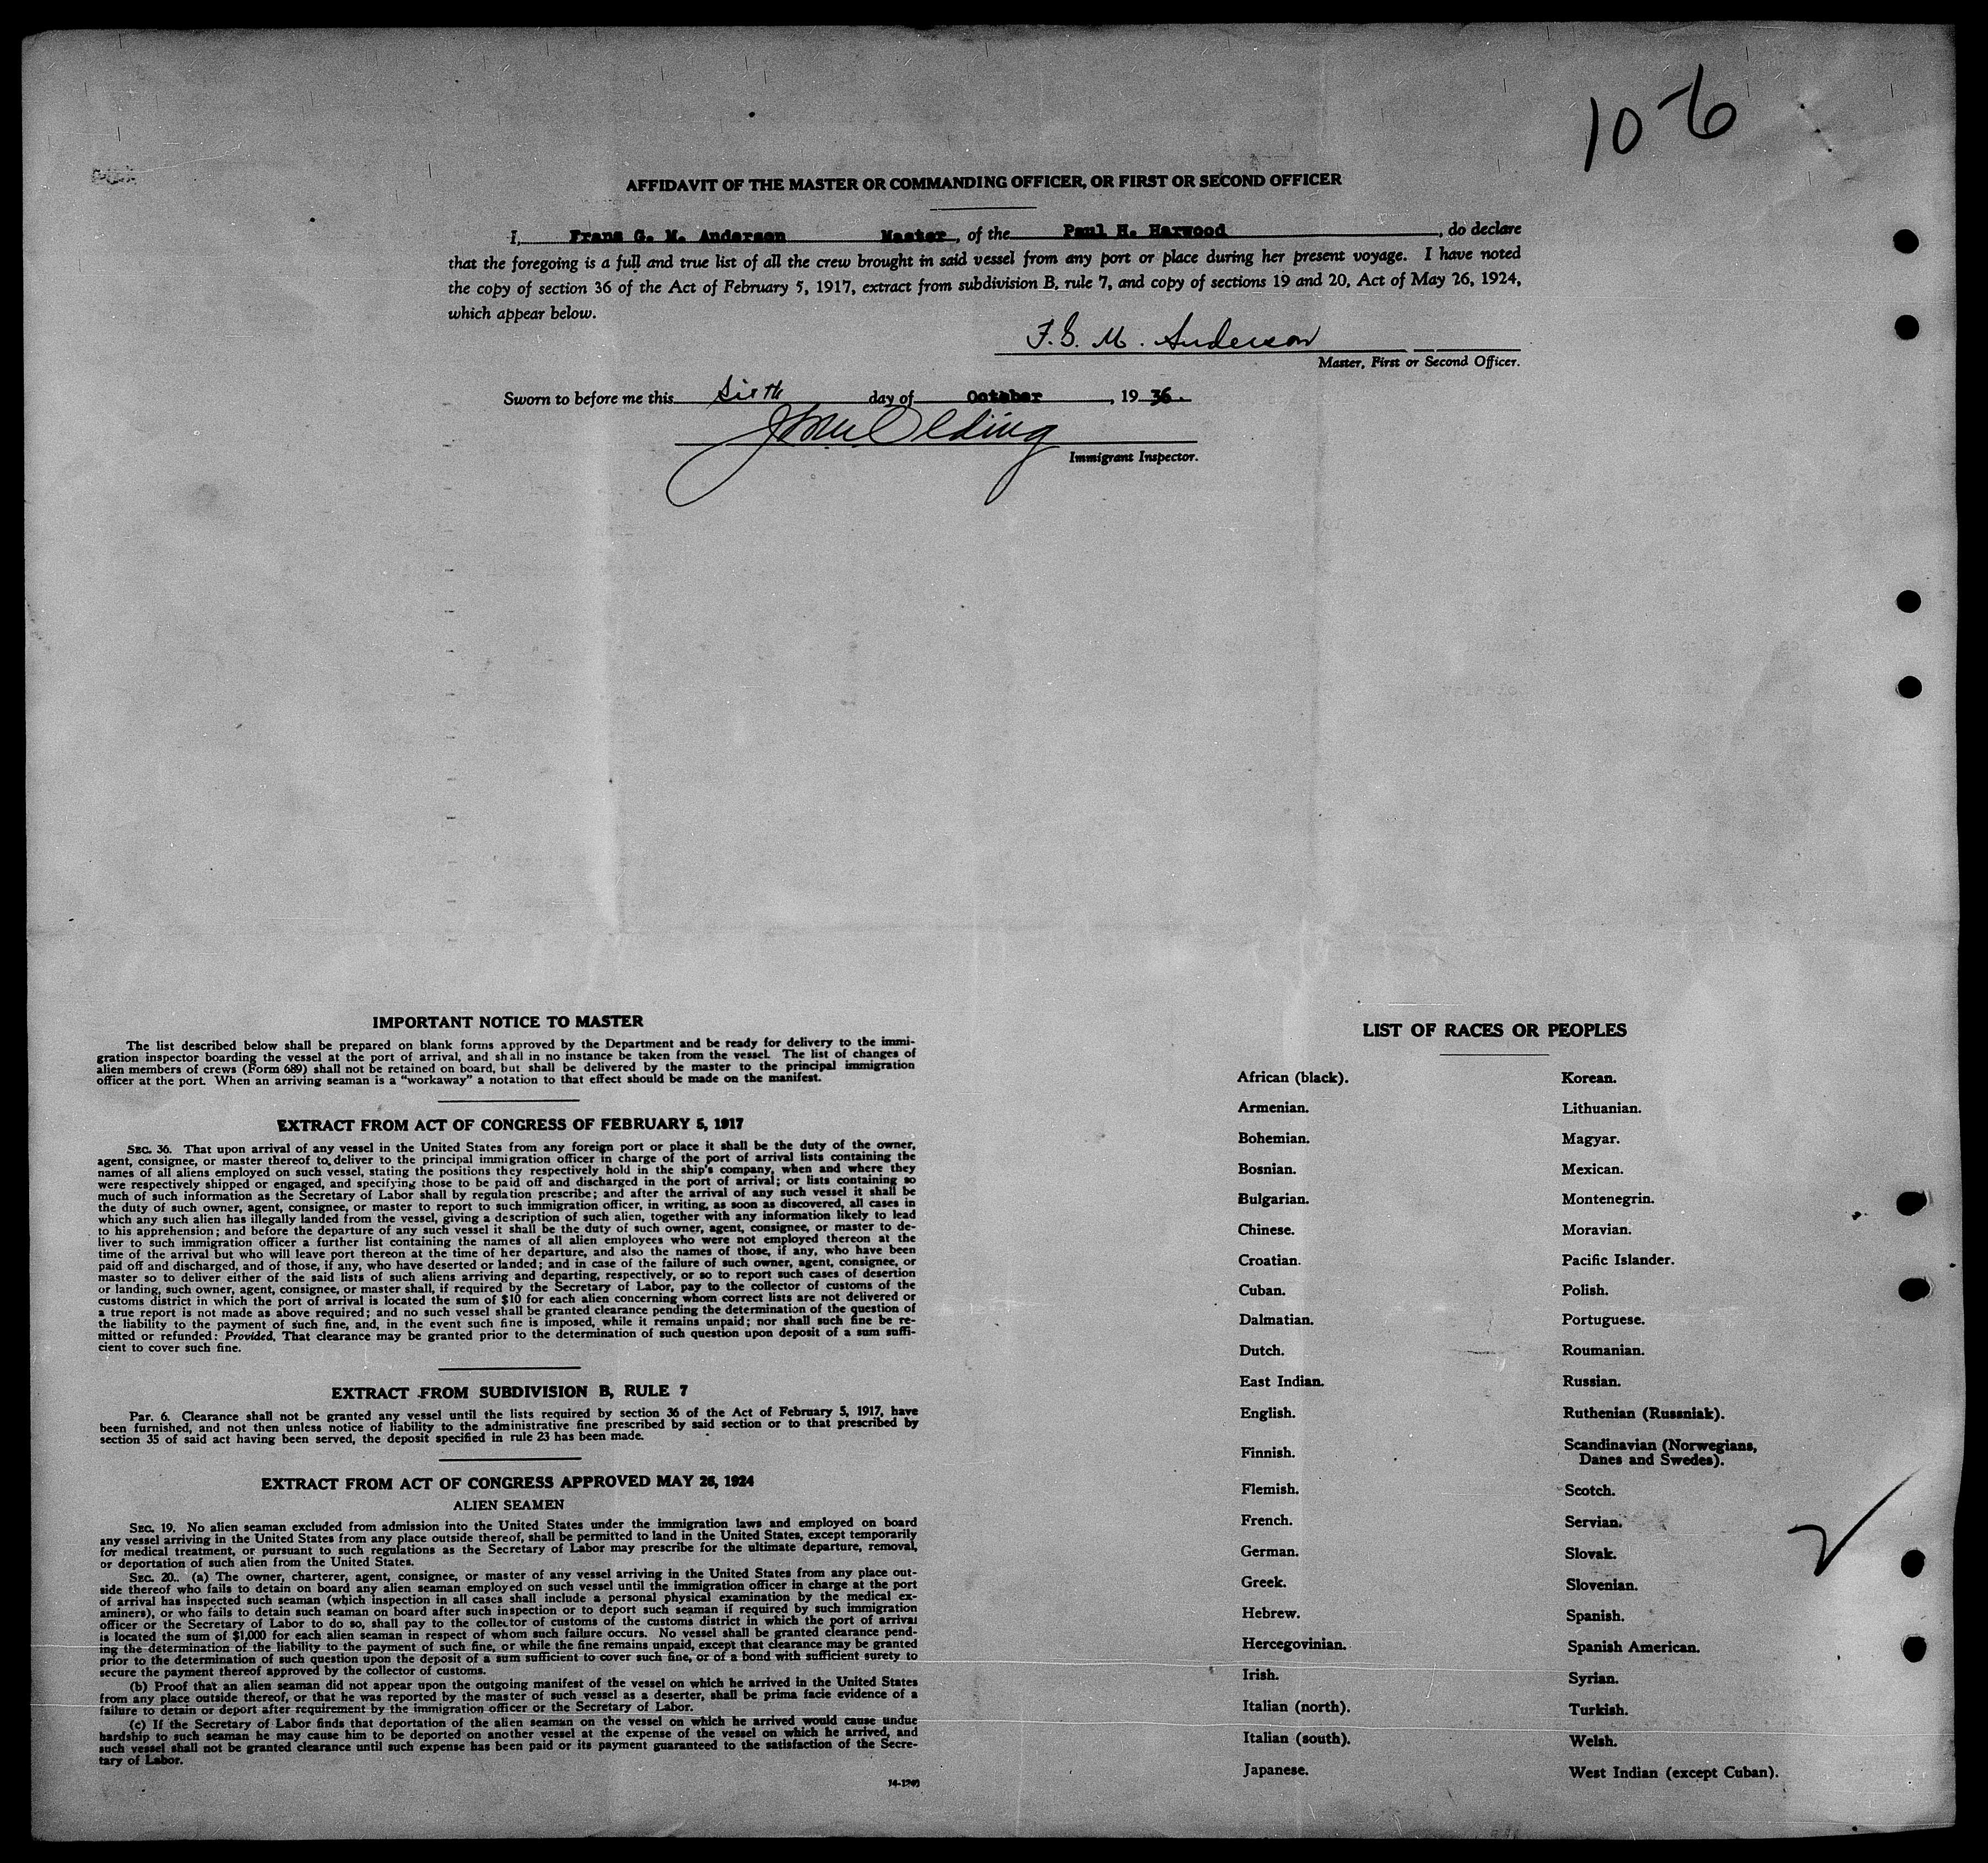 10-6
AFFIDAVIT OF THE MASTER OR COMMANDING OFFICER, OR FIRST OR SECOND OFFICER
I, Frans G. M. Anderson Master, of the Paul H. Harwood, do declare
that the foregoing is a full and true list of all the crew brought in said vessel from any port or place during her present voyage. I have noted
the copy of section 36 of the Act of February 5, 1917, extract from subdivision B, rule 7, and copy of sections 19 and 20, Act of May 26, 1924,
which appear below.
F. G. M. Anderson
Master, First or Second Officer.
Sworn to before me this sixth day of October, 19 36.
Olding
Immigrant Inspector.
IMPORTANT NOTICE TO MASTER
The list described below shall be prepared on blank forms approved by the Department and be ready for delivery to the immi-
gration inspector boarding the vessel at the port of arrival, and shall in no instance be taken from the vessel. The list of changes of
alien members of crews (Form 689) shall not be retained on board, but shall be delivered by the master to the principal immigration
officer at the port. When an arriving seaman is a "workaway" a notation to that effect should be made on the manifest.
EXTRACT FROM ACT OF CONGRESS OF FEBRUARY 5, 1917
SEC. 36. That upon arrival of any vessel in the United States from any foreign port or place it shall be the duty of the owner,
agent, consignee, or master thereof to deliver to the principal immigration officer in charge of the port of arrival lists containing the
names of all aliens employed on such vessel, stating the positions they respectively hold in the ship's company, when and where they
were respectively shipped or engaged, and specifying those to be paid off and discharged in the port of arrival; or lists containing so
much of such information as the Secretary of Labor shall by regulation prescribe; and after the arrival of any such vessel it shall be
the duty of such owner, agent, consignee, or master to report to such immigration officer, in writing, as soon as discovered, all cases in
which any such alien has illegally landed from the vessel, giving a description of such alien, together with any information likely to lead
to his apprehension; and before the departure of any such vessel it shall be the duty of such owner, agent, consignee, or master to de-
liver to such immigration officer a further list containing the names of all alien employees who were not employed thereon at the
time of the arrival but who will leave port thereon at the time of her departure, and also the names of those, if any, who have been
paid off and discharged, and of those, if any, who have deserted or landed; and in case of the failure of such owner, agent, consignee, or
master so to deliver either of the said lists of such aliens arriving and departing, respectively, or so to report such cases of desertion
or landing, such owner, agent, consignee, or master shall, if required by the Secretary of Labor, pay to the collector of customs of the
customs district in which the port of arrival is located the sum of $10 for each alien concerning whom correct lists are not delivered or
a true report is not made as above required; and no such vessel shall be granted clearance pending the determination of the question of
the liability to the payment of such fine, and, in the event such fine is imposed, while it remains unpaid; nor shall such fine be re-
mitted or refunded: Provided, That clearance may be granted prior to the determination of such question upon deposit of a sum suffi-
cient to cover such fine.
EXTRACT FROM SUBDIVISION B, RULE 7
Par. 6. Clearance shall not be granted any vessel until the lists required by section 36 of the Act of February 5, 1917, have
been furnished, and not then unless notice of liability to the administrative fine prescribed by said section or to that prescribed by
section 35 of said act having been served, the deposit specified in rule 23 has been made.
EXTRACT FROM ACT OF CONGRESS APPROVED MAY 26, 1924
ALIEN SEAMEN
SEC. 19. No alien seaman excluded from admission into the United States under the immigration laws and employed on board
any vessel arriving in the United States from any place outside thereof, shall be permitted to land in the United States, except temporarily
for medical treatment, or pursuant to such regulations as the Secretary of Labor may prescribe for the ultimate departure, removal,
or deportation of such alien from the United States.
SEC. 20. (a) The owner, charterer, agent, consignee, or master of any vessel arriving in the United States from any place out-
side thereof who fails to detain on board any alien seaman employed on such vessel until the immigration officer in charge at the port
of arrival has inspected such seaman (which inspection in all cases shall include a personal physical examination by the medical ex-
aminers), or who fails to detain such seaman on board after such inspection or to deport such seaman if required by such immigration
officer or the Secretary of Labor to do so, shall pay to the collector of customs of the customs district in which the port of arrival
is located the sum of $1,000 for each alien seaman in respect of whom such failure occurs. No vessel shall be granted clearance pend-
ing the determination of the liability to the payment of such fine, or while the fine remains unpaid, except that clearance may be granted
prior to the determination of such question upon the deposit of a sum sufficient to cover such fine, or of a bond with sufficient surety to
secure the payment thereof approved by the collector of customs.
(b) Proof that an alien seaman did not appear upon the outgoing manifest of the vessel on which he arrived in the United States
from any place outside thereof, or that he was reported by the master of such vessel as a deserter, shall be prima facie evidence of a
failure to detain or deport after requirement by the immigration officer or the Secretary of Labor.
(c) If the Secretary of Labor finds that deportation of the alien seaman on the vessel on which he arrived would cause undue
hardship to such seaman he may cause him to be deported on another vessel at the expense of the vessel on which he arrived, and
such vessel shall not be granted clearance until such expense has been paid or its payment guaranteed to the satisfaction of the Secre-
tary of Labor.
LIST OF RACES OR PEOPLES
African (black).
Armenian.
Bohemian.
Bosnian.
Bulgarian.
Chinese.
Croatian.
Cuban.
Dalmatian.
Dutch.
East Indian.
English.
Finnish.
Flemish.
French.
German.
Greek.
Hebrew.
Hercegovinian.
Irish.
Italian (north).
Italian (south).
Japanese.
Korean.
Lithuanian.
Magyar.
Mexican.
Montenegrin.
Moravian.
Pacific Islander.
Polish.
Portuguese.
Roumanian.
Russian.
Ruthenian (Russniak).
Scandinavian (Norwegians,
Danes and Swedes).
Scotch.
Servian.
Slovak.
Slovenian.
Spanish.
Spanish American.
Syrian.
Turkish.
Welsh.
West Indian (except Cuban).